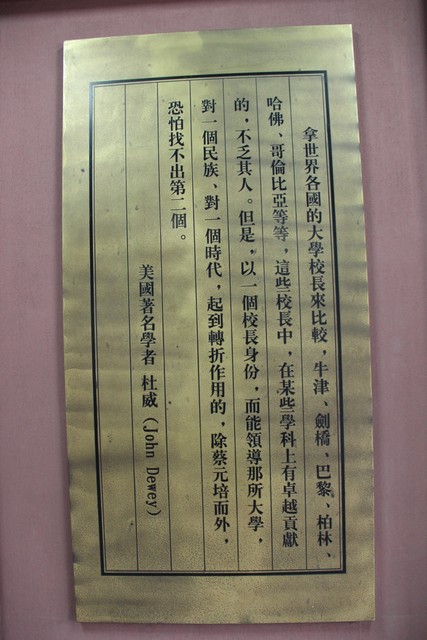 拿世界各國的大學校長來比較，牛津、劍橋、巴黎、柏林、
哈佛、哥倫比亞等等，這些校長中，在某些學科上有卓越貢獻
的，不乏其人。但是，以一個校長身份，而能領導那所大學，
對一個民族、對一個時代，起到轉折作用的，除蔡元培而外，
恐怕找不出第二個。
美國著名學者 杜威（John Dewey）